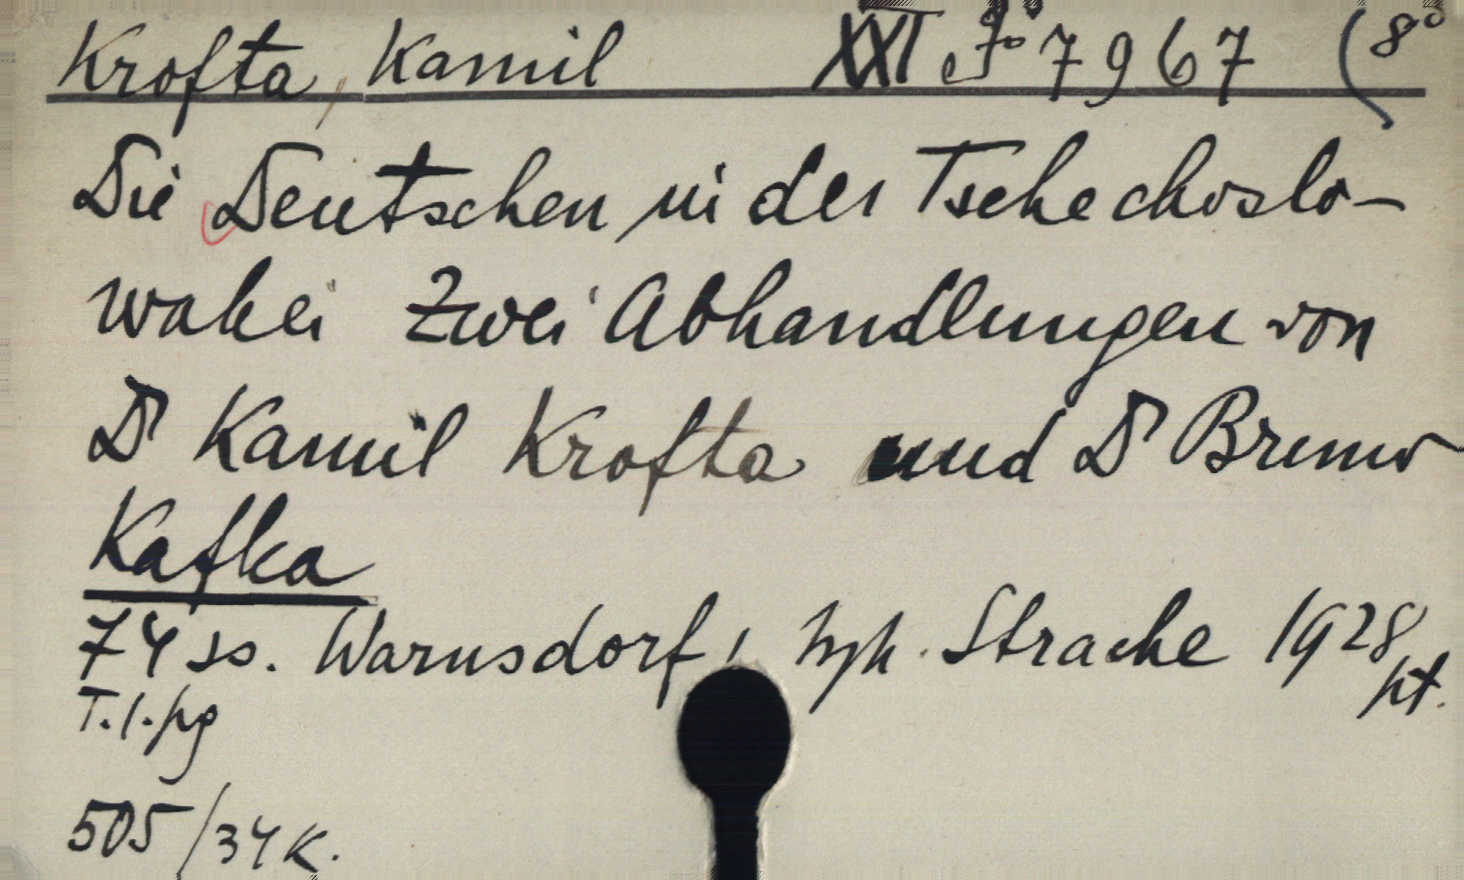 Krofta, Kamil XXI F° 7967 (8°
Die Deutschen in der Tschechoslo-
wakei Zwei Abhandlungen von
Dr Kamil Krofta und Dr Bruno
Kafka
74 ss. Warnsdorf, typ. Strache 1928
pt.
T.l.pg
505/34 K.